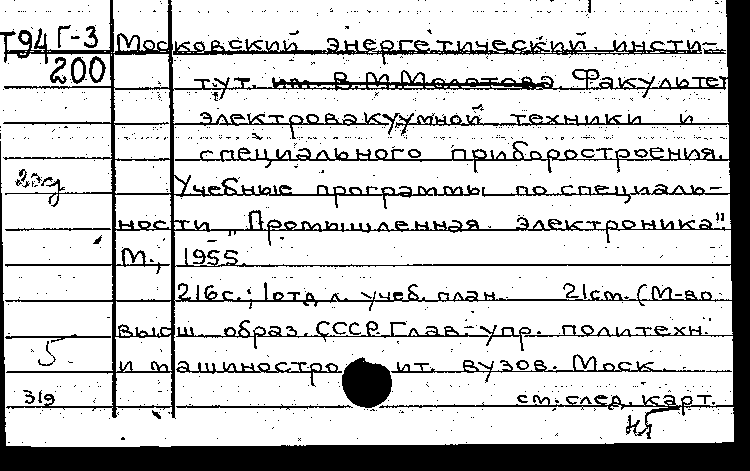 Т94 Г-3 Московский энергетический инсти-
200 тут. им. В.М.Молотова. Факультет
электровакуумной техники и
специального приборостроения.
Учебные программы по специаль-
ности „Промышленная электроника".
М., 1955.
216с.; 1отд.л. учеб. план. 21см. (М-во
высш. образ. СССР. Глав. упр. политехн.
5 и машиностро ит. вузов. Моск.
319 см. след. карт.